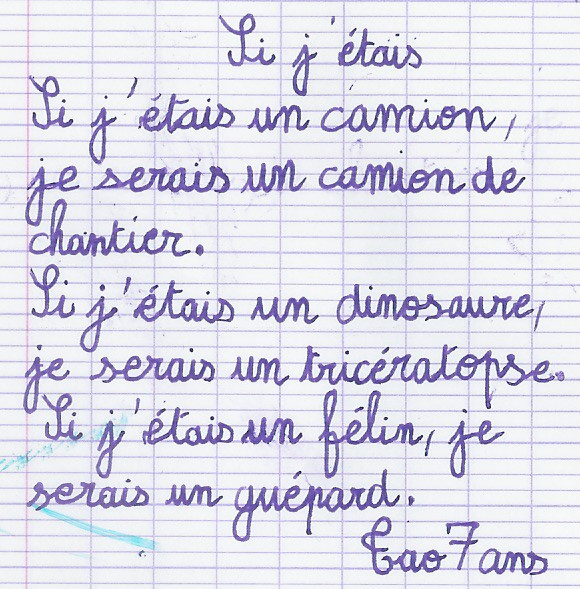 Si j'étais
Si j'étais un camion,
je serais un camion de
chantier.
Si j'étais un dinosaure,
je serais un tricératopse.
Si j'étais un félin, je
serais un guépard.
Tao 7 ans